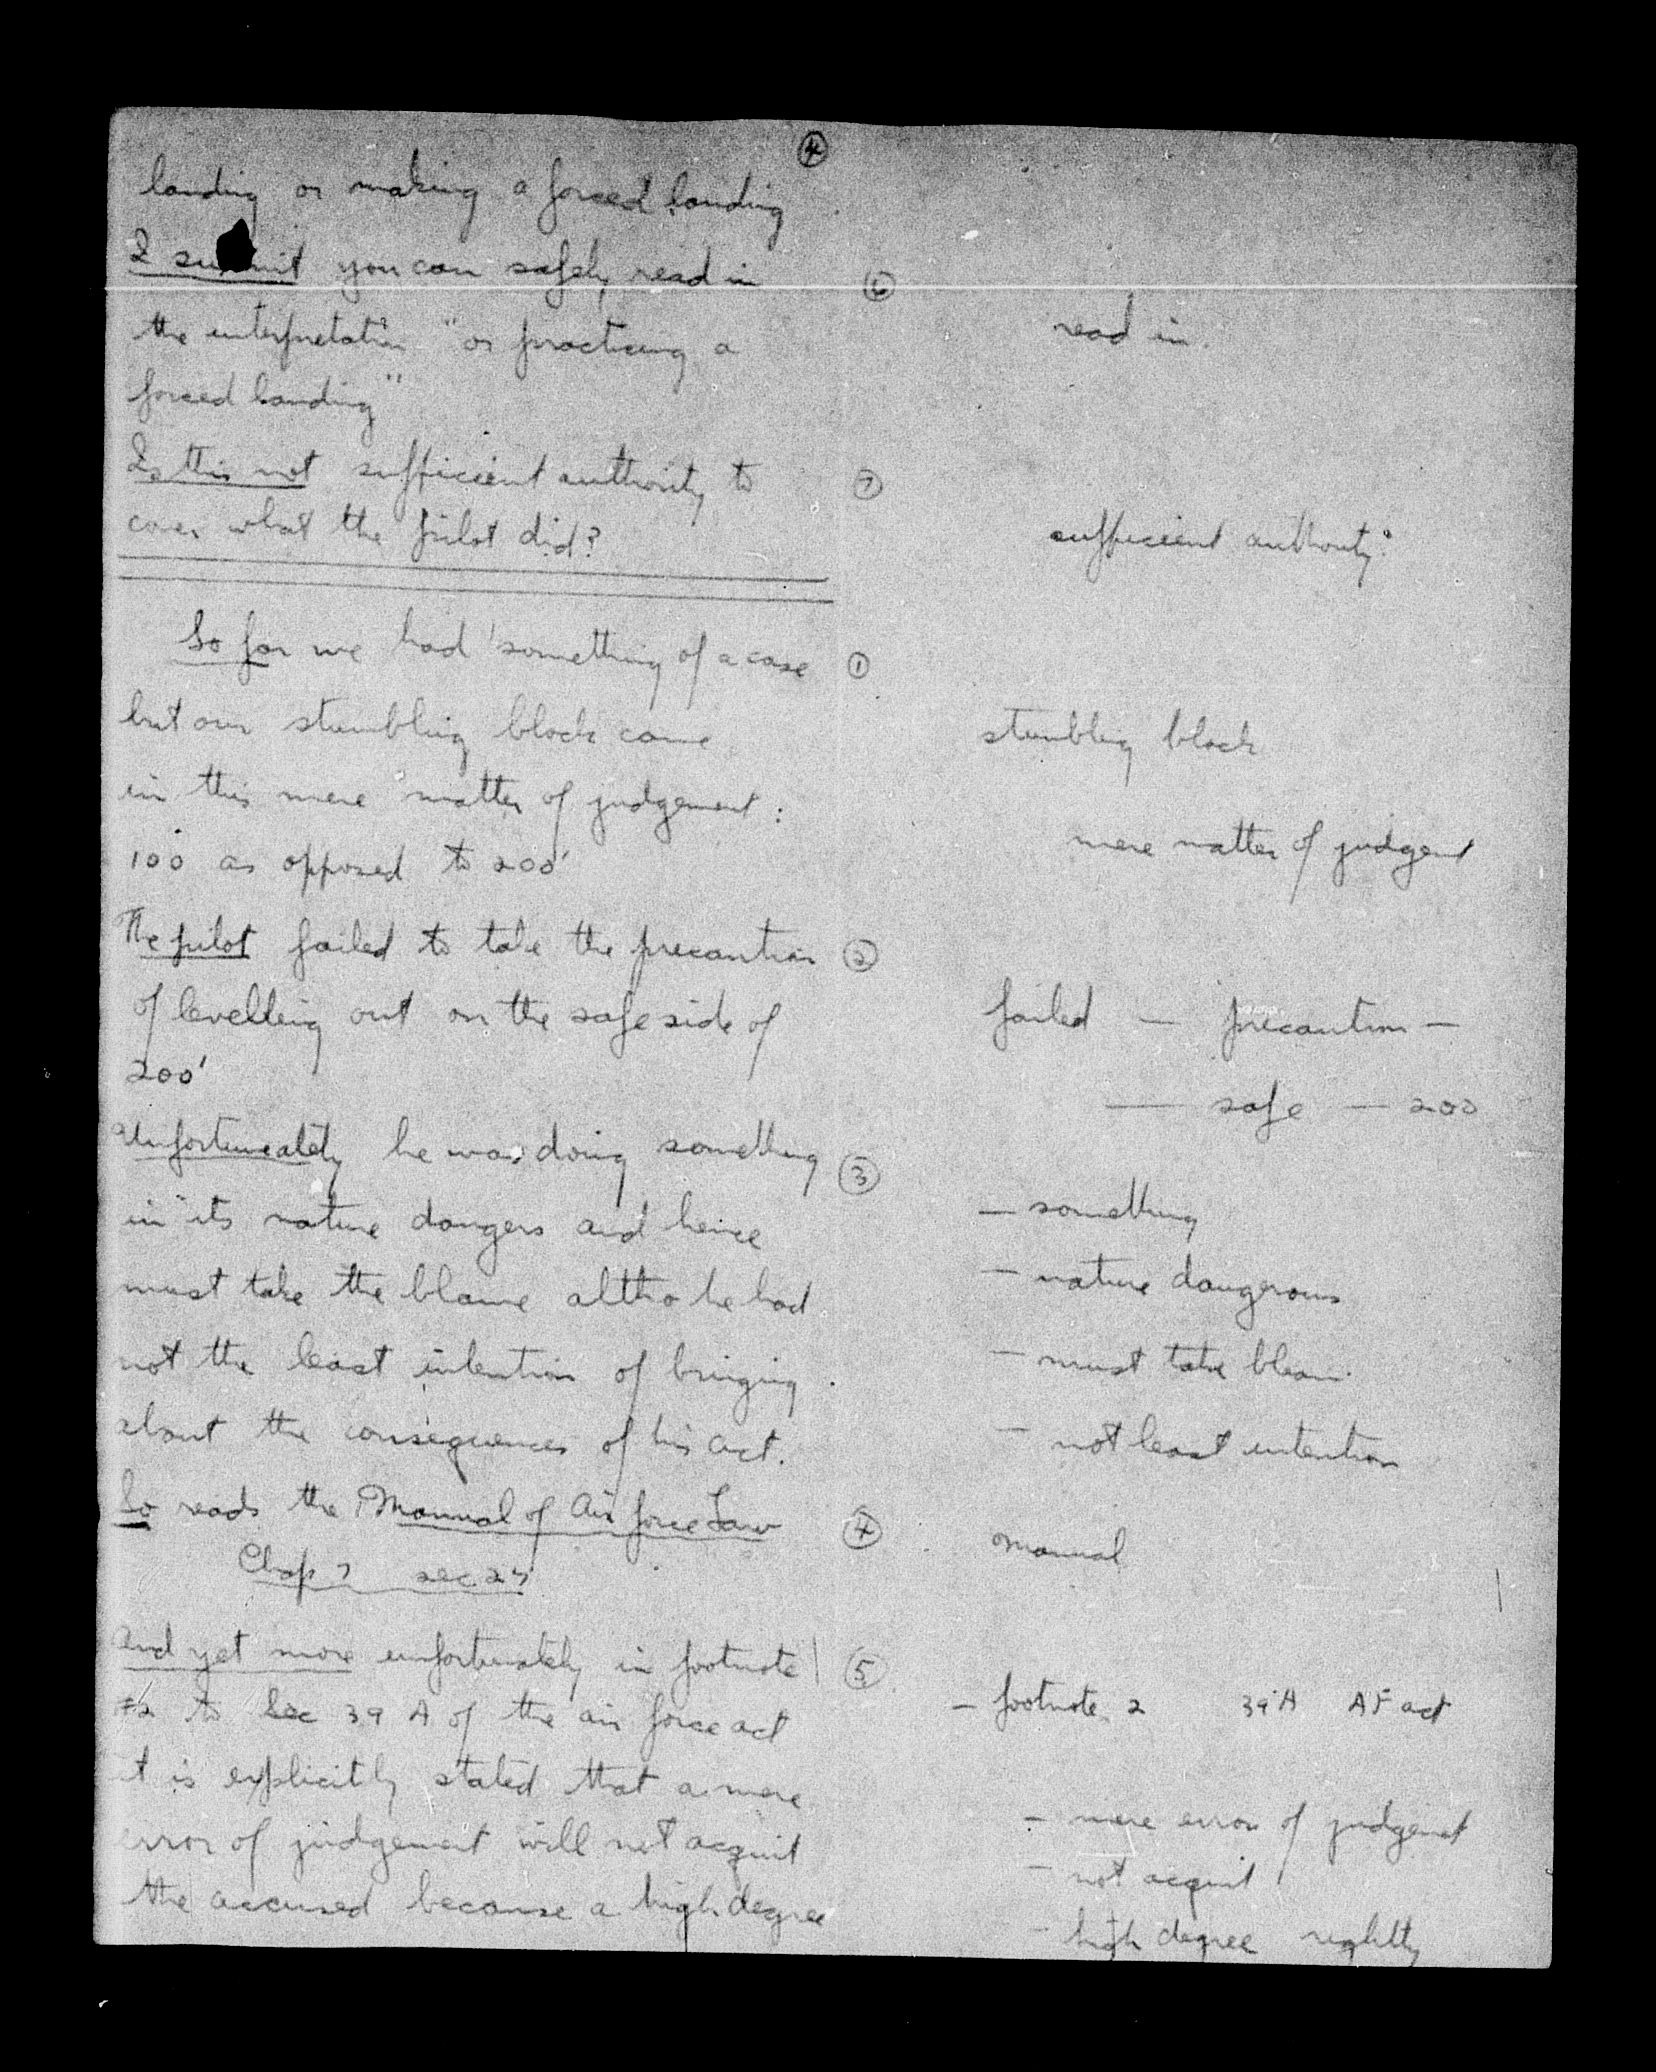 4
landing or making a forced landing
I submit you can safely read in
6
the interpretation "or practicing a
read in.
forced landing"
Is this not sufficient authority to
7
cover what the pilot did?
sufficient authority?
So far we had something of a case
1
but our stumbling block came
stumbling block
in this mere matter of judgement:
mere matter of judgent
100 as opposed to 200'
The pilot failed to take the precaution
2
of levelling out on the safe side of
failed — precaution —
200'
— safe — 200
Unfortuneately he was doing something
3
in its nature dangers and hence
— something
must take the blame altho he had
— nature dangerous
not the least intention of bringing
— must take blam
about the consequences of his act.
— not least intention
So reads the Manual of Air force Law
4
manual
Chap 7 sec 25
And yet more unfortunately in footnote
5
#2 to Sec 39 A of the air force act
— footnote 2 39 A AF act
it is explicitly stated that a mere
— mere error of judgemet
error of judgement will not acquit
— not acquit
the accused because a high degree
— high degree rightly